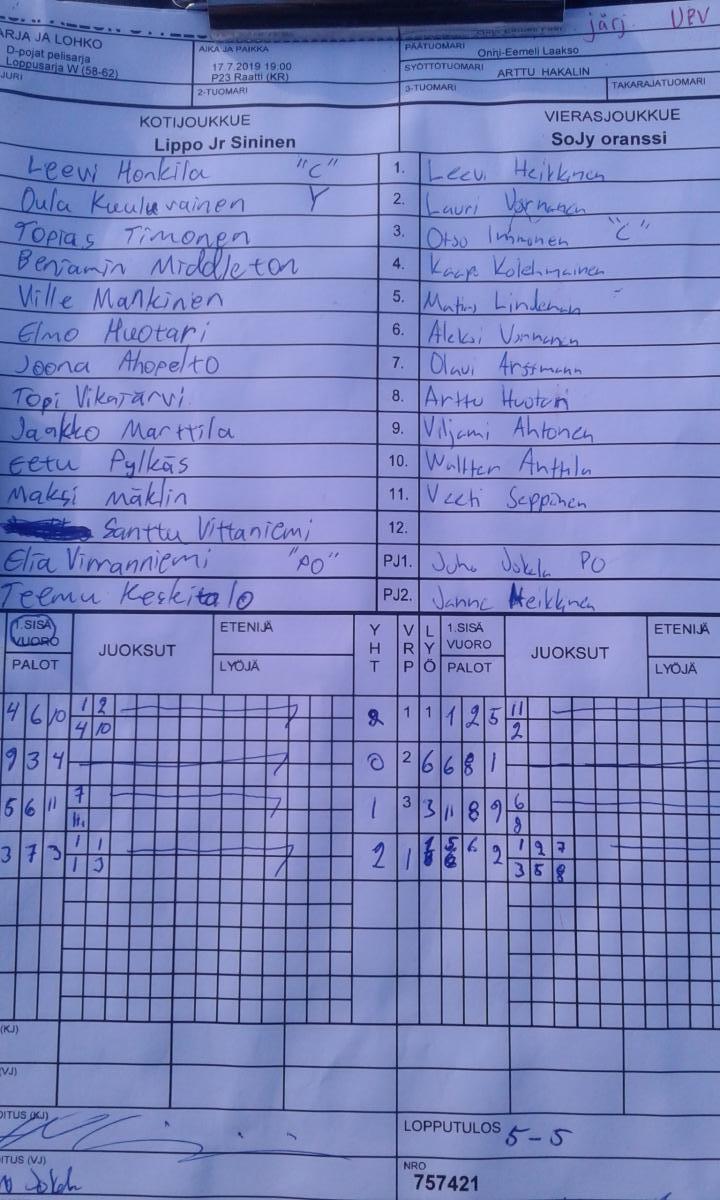 järj. UPV
ARJA JA LOHKO
D-pojat pelisarja
Loppusarja W (58-62)
JURI
AIKA JA PAIKKA
17.7.2019 19:00
P23 Raatti (KR)
2-TUOMARI
PÄÄTUOMARI Onni-Eemeli Laakso
SYÖTTÖTUOMARI ARTTU HAKALIN
3-TUOMARI TAKARAJATUOMARI
KOTIJOUKKUE
Lippo Jr Sininen
VIERASJOUKKUE
SoJy oranssi
Leevi Honkila "C" 1. Leevi Heikkinen
Oula Kuuluvainen Y 2. Lauri Vornanen
Topias Timonen 3. Otso Immonen "C"
Benjamin Middleton 4. Kaap Kolehmainen
Ville Mankinen 5. Matias Lindeman
Elmo Huotari 6. Aleksi Vornanen
Joona Ahopelto 7. Olavi
Topi Vikajärvi 8. Arttu Huotari
Jaakko Marttila 9. Viljami Ahtonen
Eetu Pylkäs 10. Wallter Anttila
Maksi Mäklin 11. Veeti Seppinen
Santtu Vittaniemi 12.
Elia Vimanniemi "PO" PJ1. Juho Jokela PO
Teemu Keskitalo PJ2. Janne Heikkinen
1.SISÄ VUORO JUOKSUT ETENIJÄ YHT VRP LYÖ 1.SISÄ VUORO JUOKSUT ETENIJÄ
PALOT LYÖJÄ PALOT LYÖJÄ
4 6 10 1 2 2 1 1 1 2 5 11
4 10 2
9 3 4 0 2 6 6 8 1
5 6 11 7 1 3 3 11 8 9 6
11 8
3 7 3 1 1 2 1 6 2 1 2 7
1 3 3 5 8
(KJ)
(VJ)
OITUS (KJ)
LOPPUTULOS 5-5
OITUS (VJ)
NRO
757421